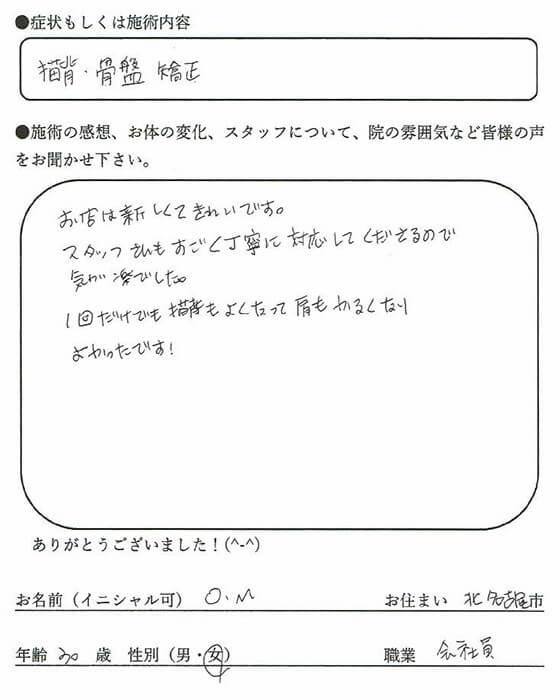 ●症状もしくは施術内容
猫背・骨盤 矯正
●施術の感想、お体の変化、スタッフについて、院の雰囲気など皆様の声
をお聞かせ下さい。
お店は新しくてきれいです。
スタッフさんもすごく丁寧に対応してくださるので
気が楽でした。
1回だけでも猫背もよくなって肩もかるくなり
よかったです!
ありがとうございました!(^-^)
お名前(イニシャル可) O.M お住まい 北名古屋市
年齢 30 歳 性別(男・女) 職業 会社員